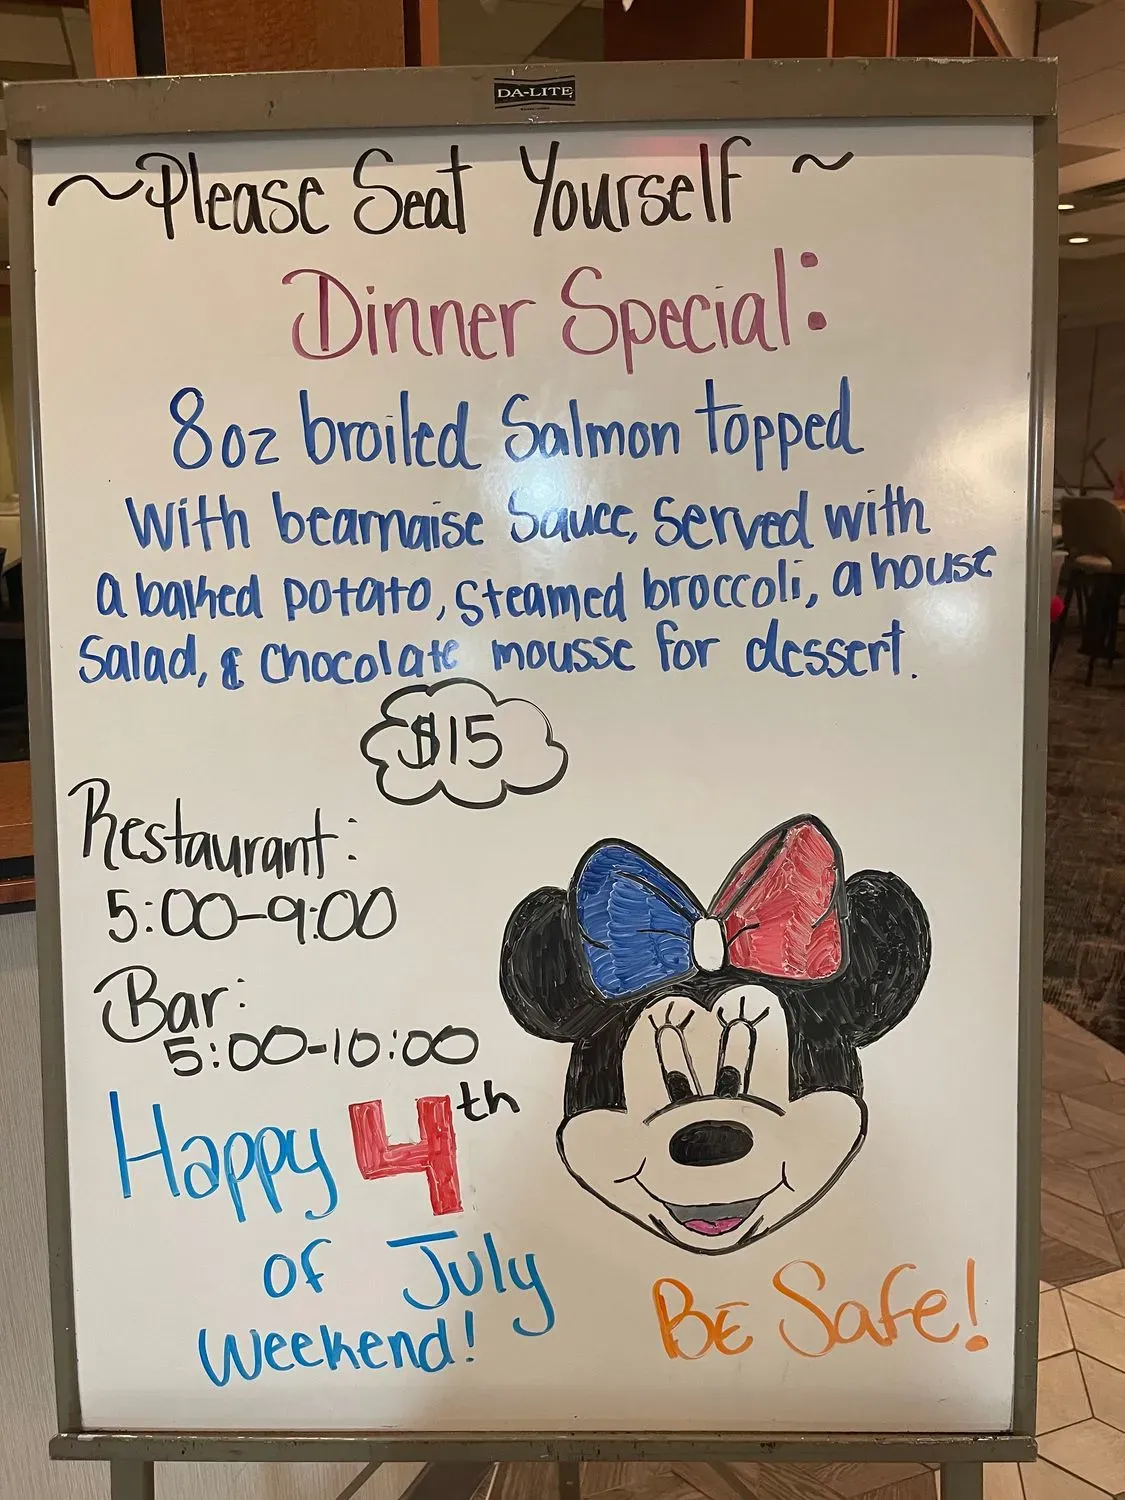 DA-LITE
~Please Seat Yourself~
Dinner Special:
8oz broiled Salmon topped
with bearnaise Sauce, Served with
a baked potato, steamed broccoli, a house
Salad, & Chocolate mousse for dessert.
$15
Restaurant:
5:00-9:00
Bar:
5:00-10:00
Happy 4th
of July
Weekend!
BE Safe!